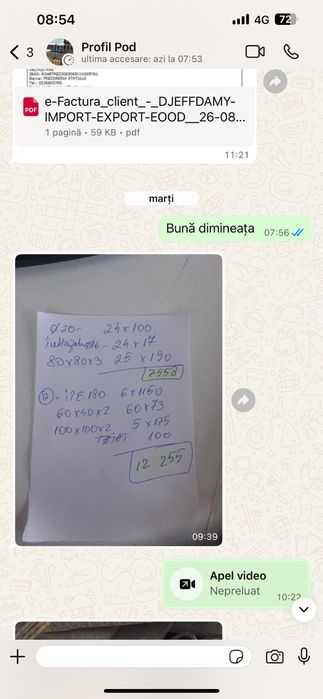 08:54
4G 72
3
Profil Pod
ultima accesare: azi la 07:53
PDF
e-Factura_client_-_DJEFFDAMY-
IMPORT-EXPORT-EOOD__26-08...
1 pagină • 59 KB • pdf
11:21
marți
Bună dimineața
07:56
Ø 20- 24x100
24 x 17
80x80x3 25 x 190
7558
12. 6 x 1150
60x40x2 60 x 73
100x100x2 5 x 175
TAIAT 100
12.255
09:39
Apel video
Nepreluat
10:22